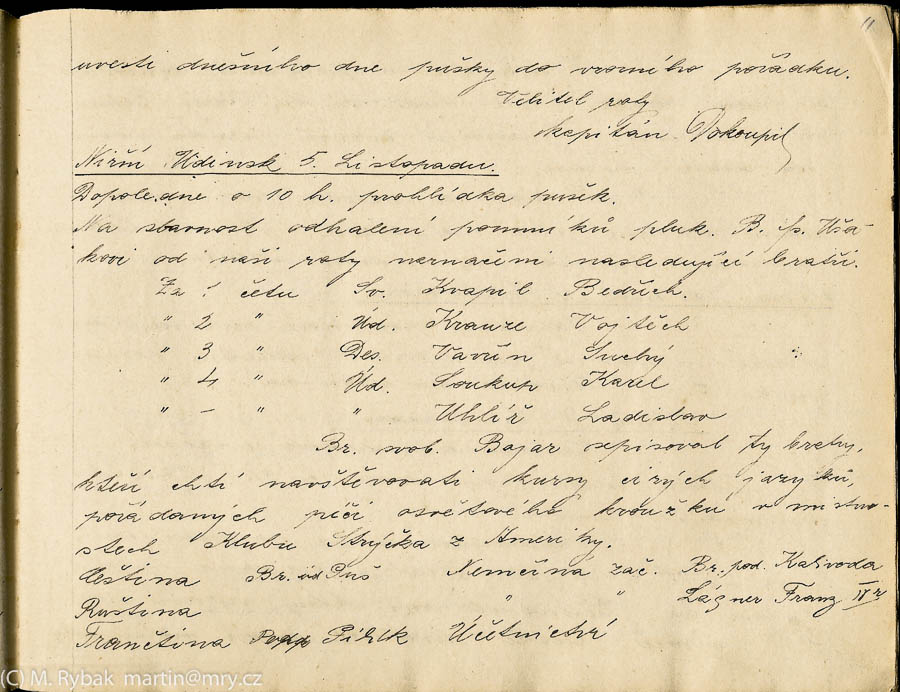 11
uvesti dnešního dne pušky do vzorného pořádku.
Velitel roty
kapitán Dokoupil
Nižní Udinsk 5. Listopadu.
Dopoledne o 10 h. prohlídka pušek.
Na slavnost odhalení pomníků pluk. B. p. Uša-
kovi od naší roty naznačeni nasledující bratři.
Za 1 četu Sv. Kvapil Bedřich.
" 2 " Úd. Krauze Vojtěch
" 3 " Des. Vavřín Suchý
" 4 " Úd. Soukup Karel
" - " " Uhlíř Ladislav
Br. svob. Bajar spisoval ty bratry,
kteří chtí navštěvovati kursy cizých jazyků,
pořádaných péčí osvětového kroužku v mistno-
stech Klubu Strýčka z Ameriky.
čeština Br. úd Puš Nemčina zač. Br. pod. Kalivoda
Ruština " " Lágner Franz IV r
Frančtina Pihík Účetnictví
(C) M. Rybak martin@mry.cz